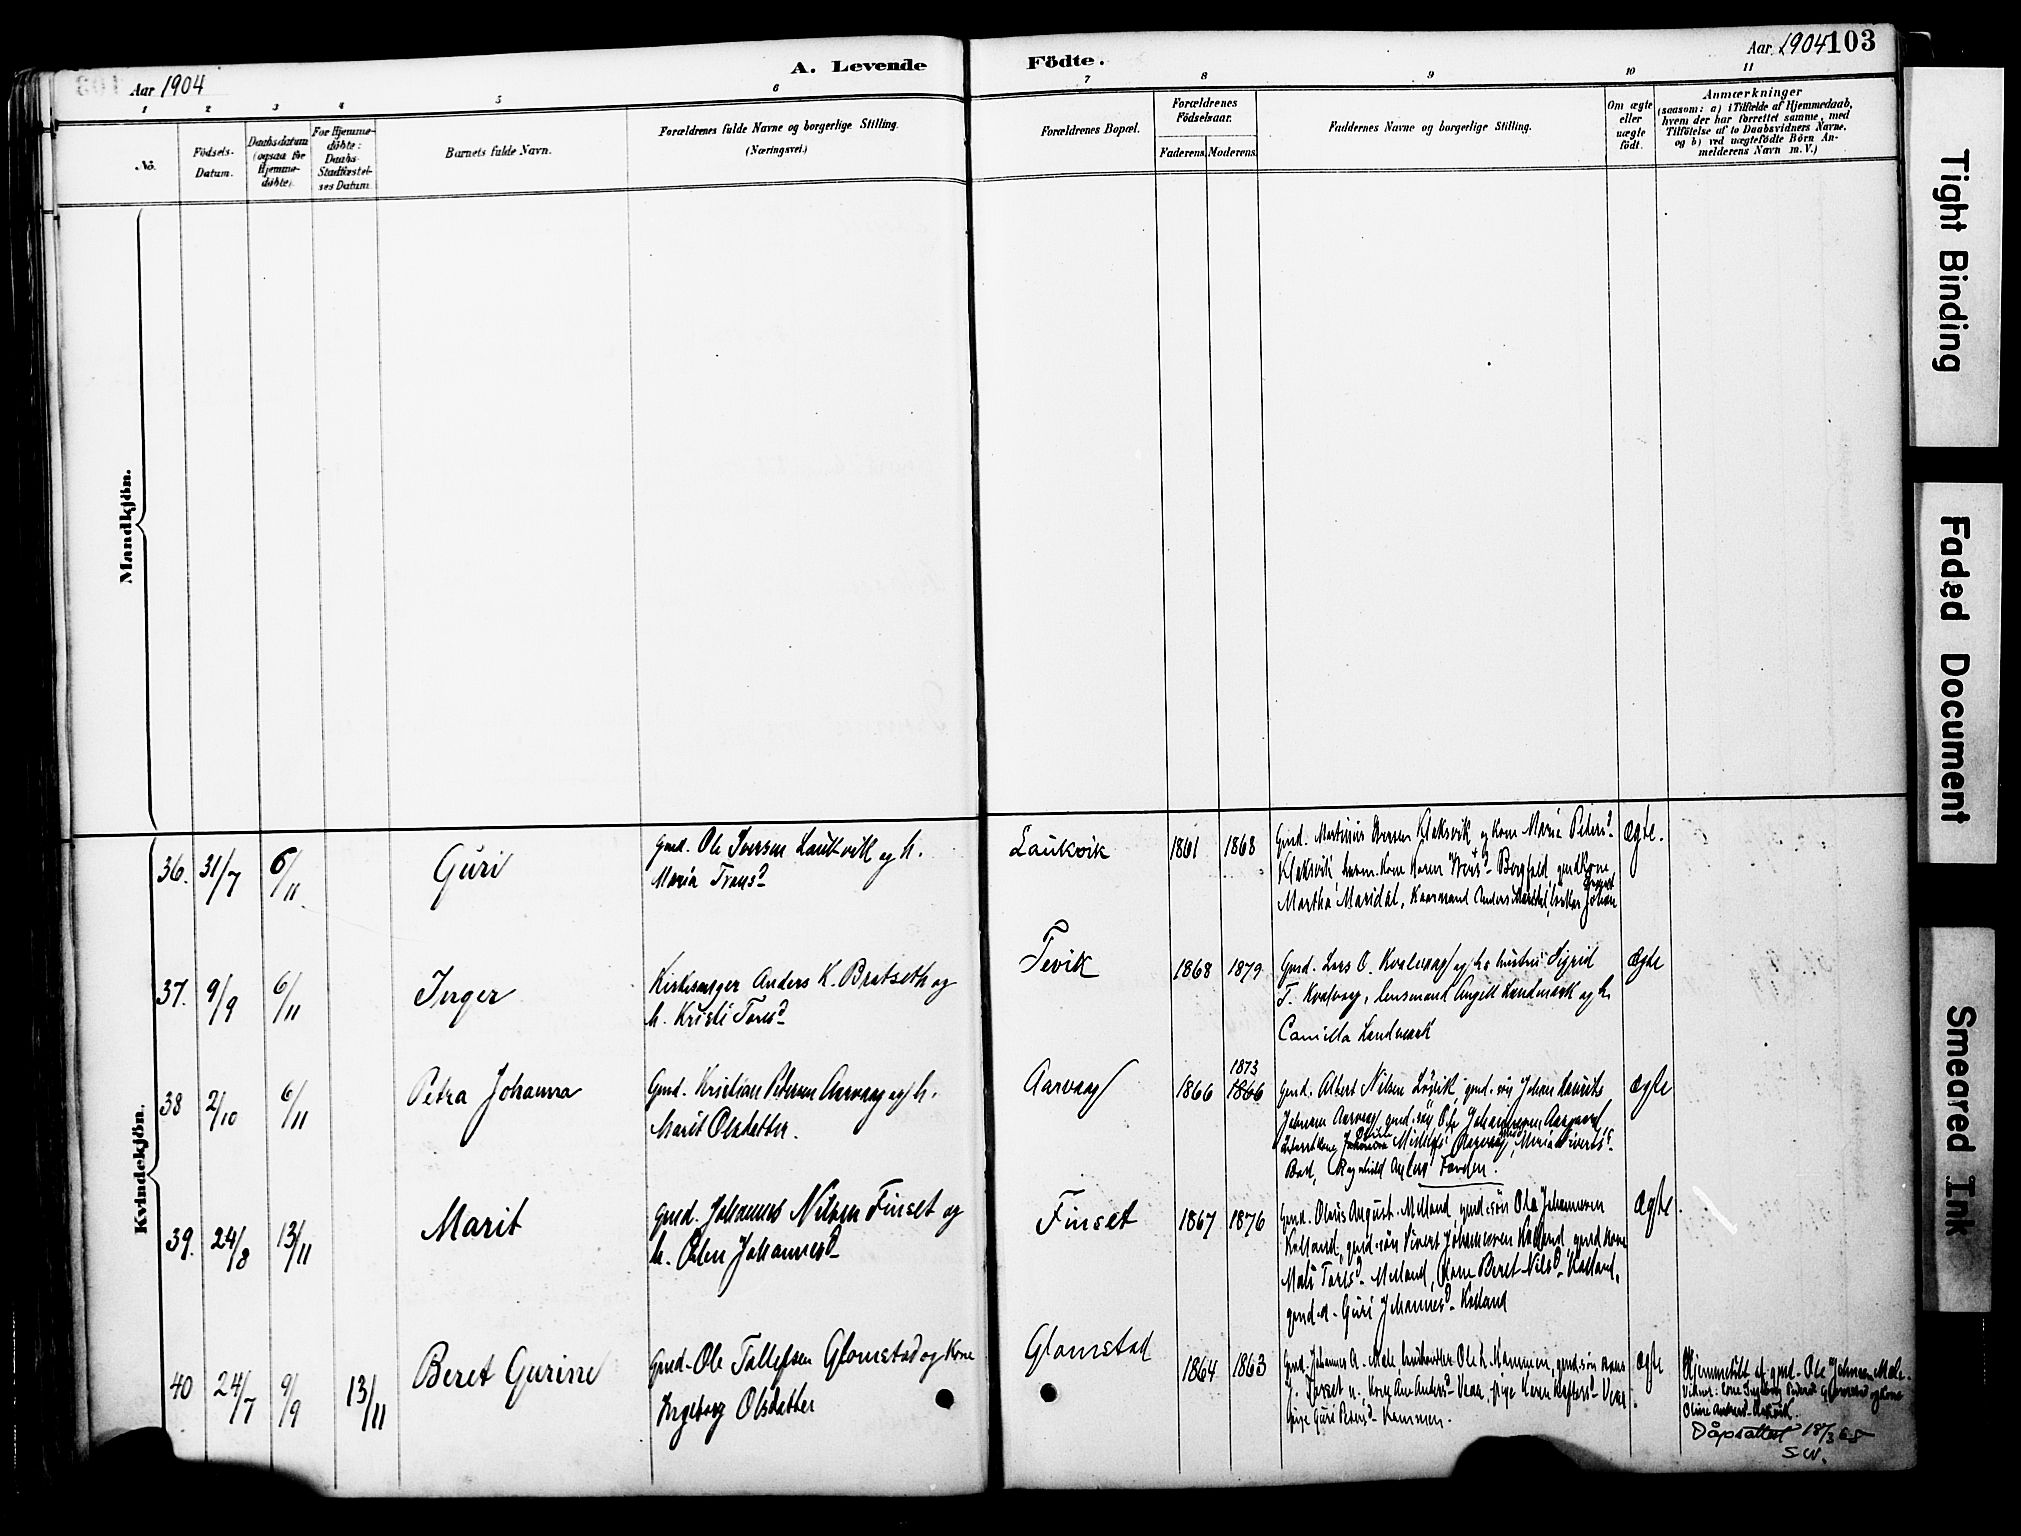 103
Aar 1904
A. Levende Födte.
Aar 1904
1 2 3 4 5 6 7 8 9 10 11
No.
Födsels-
Datum.
Daabsdatum
(ogsaa för
Hjemme-
döbte).
For Hjemme-
döbte:
Daabs-
Stadfæstel-
ses Datum.
Barnets fulde Navn.
Forældrenes fulde Navne og borgerlige Stilling.
(Næringsvei.)
Forældrenes Bopæl.
Forældrenes
Födselsaar.
Faderens. Moderens.
Faddernes Navne og borgerlige Stilling.
Om ægte
eller
uægte
födt.
Anmærkninger
(saasom: a) i Tilfælde af Hjemmedaab,
hvem der har forrettet samme, med
Tilföielse af to Daabsvidners Navne,
og b) ved uægtefödte Börn An-
melderens Navn m. V.)
Mandkjön.
Kvindekjön.
36. 31/7 6/11
Guri
Gmd. Ole Iversen Laukvik og h.
Maria
Laukvik
1861 1868
Gmd. Martinus Iversen Klaksvik og kone Maria Peders d.
Klaksvik
Martha Maridal, Anders Maridal, Johan
Ægte.
37. 9/9 6/11
Inger
Kirkesanger Anders K. Bratseth og
h. Kristi Tores d.
Tevik
1868 1879
Gmd. Lars O. Kvalvaag og hs hustru Sigrid
T. Kvalvaag, lensmand Angell Landmark og h.
Camilla Landmark
Ægte
38 2/10 6/11
Petra Johanna
Gmd. Kristian Petersen Aarvaag og h.
Marit Olsdatter.
Aarvaag
1866 1873
1866
Gmd. Albert Nilsen Løgvik, gmd. søn Johan Laurits
Johnsen Aarvaag, gmd. søn Ole Johannesen Aarvaag,
Maria Siverts d.
Ragnhild
Ægte
39. 24/8 13/11
Marit
Gmd. Johannes Nilsen Finset og
h. Johannes d.
Finset
1867 1876
Gmd. Olaus August Melland, gmd. søn Ola Johannesen
Kolland, gmd. søn Sivert Johannesen Kolland, gmd kone
Tores d. Melland, kone Beret Nils d. Kolland,
gmd. d. Guri Johannes d. Kolland
Ægte.
40 24/7 9/9 13/11
Beret Gurine
Gmd. Ole Tollefsen Glomstad og kone
Ingeborg Olsdatter
Glomstad
1864 1863
Gmd. Johannes A. Male, landhandler Ole L. Mannen, gmd. søn
Anders d. Veaa, pige Karen Veaa
pige Guri Peders d.
Ægte.
Hjemmedöbt af gmd. Ole Johnsen Male.
Vidner: kone Ingeborg Peders d. Glomstad og kone
Oline Anders d.
Dåpsattest 18/3 68
S.W.
Tight Binding
Faded Document
Smeared Ink